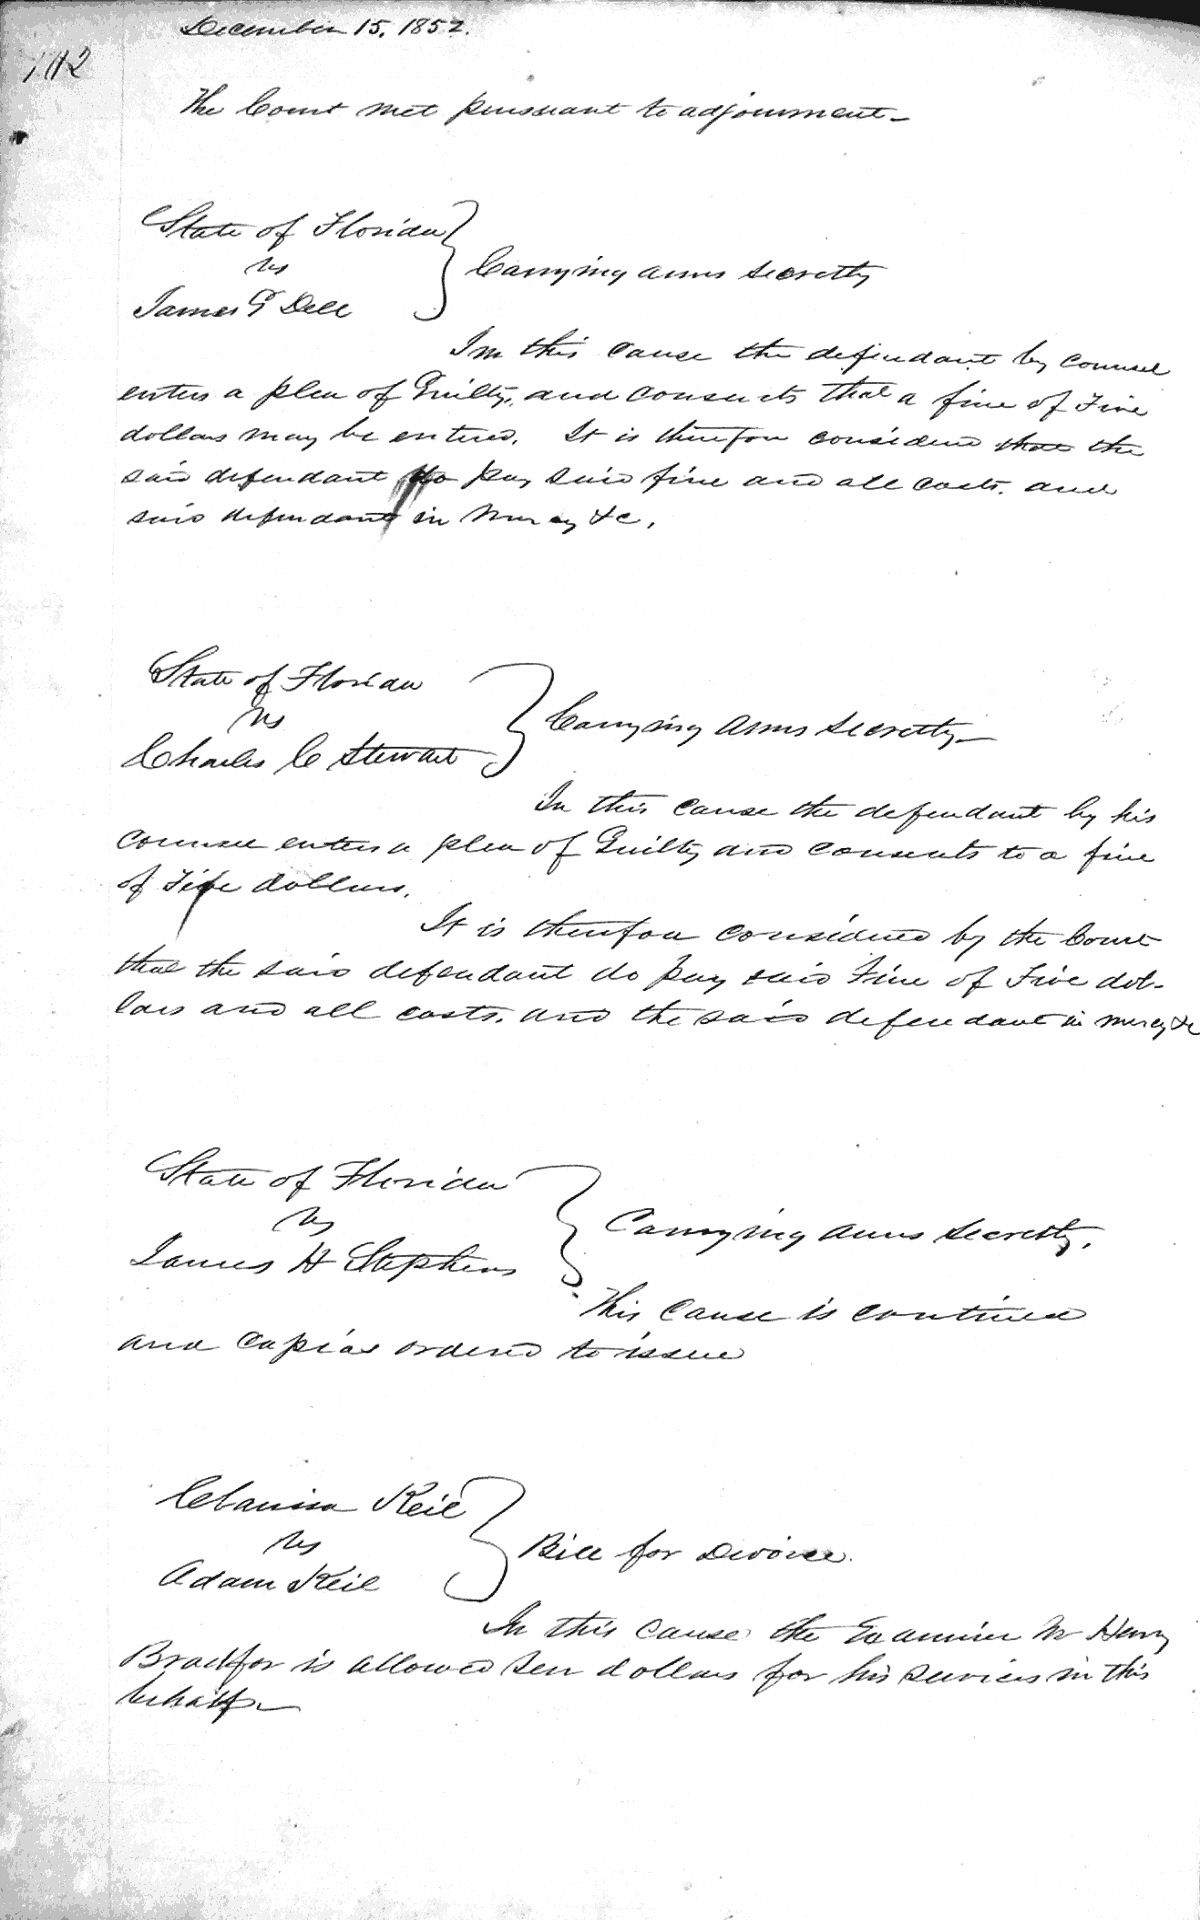 December 15, 1852.
102
The Court met pursuant to adjournment—
State of Florida
vs
Carrying arms secretly
James G Dell
In this cause the defendant by counsel
enters a plea of Guilty, and consents that a fine of Five
dollars may be entered. It is therefore considered that the
said defendant do pay said fine and all costs. and
said defendant in mercy &c.
State of Florida
vs
Carrying arms secretly—
Charles C Stewart
In this cause the defendant by his
counsel enters a plea of Guilty and consents to a fine
of Five dollars.
It is therefore considered by the Court
that the said defendant do pay said Fine of Five dol-
lars and all costs. and the said defendant in mercy &c
State of Florida
vs
Carrying arms secretly.
James H Stephens
This cause is continued
and capias ordered to issue
Clarissa Keil
vs
Bill for Divorce.
Adam Keil
In this cause the Examiner Mr Henry
is allowed ten dollars for his services in this
behalf—